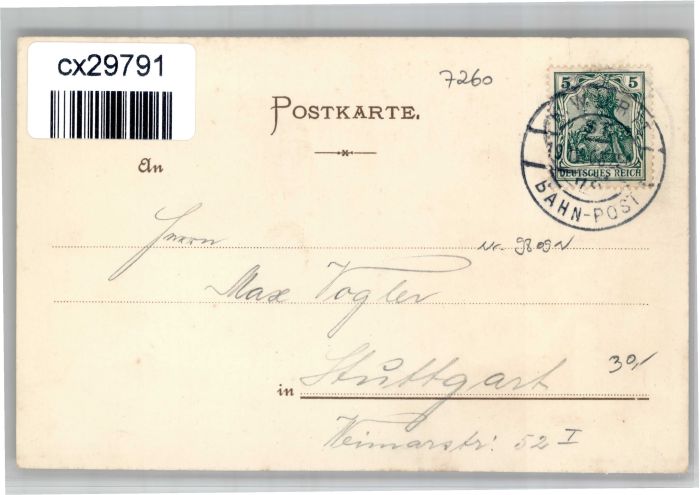 cx29791
7260
5 5
POSTKARTE.
DEUTSCHES REICH
BAHN-POST
An
Herrn
Nr. 9809N
Max Vogler
30,/
in Stuttgart
Weimarstr: 52 I